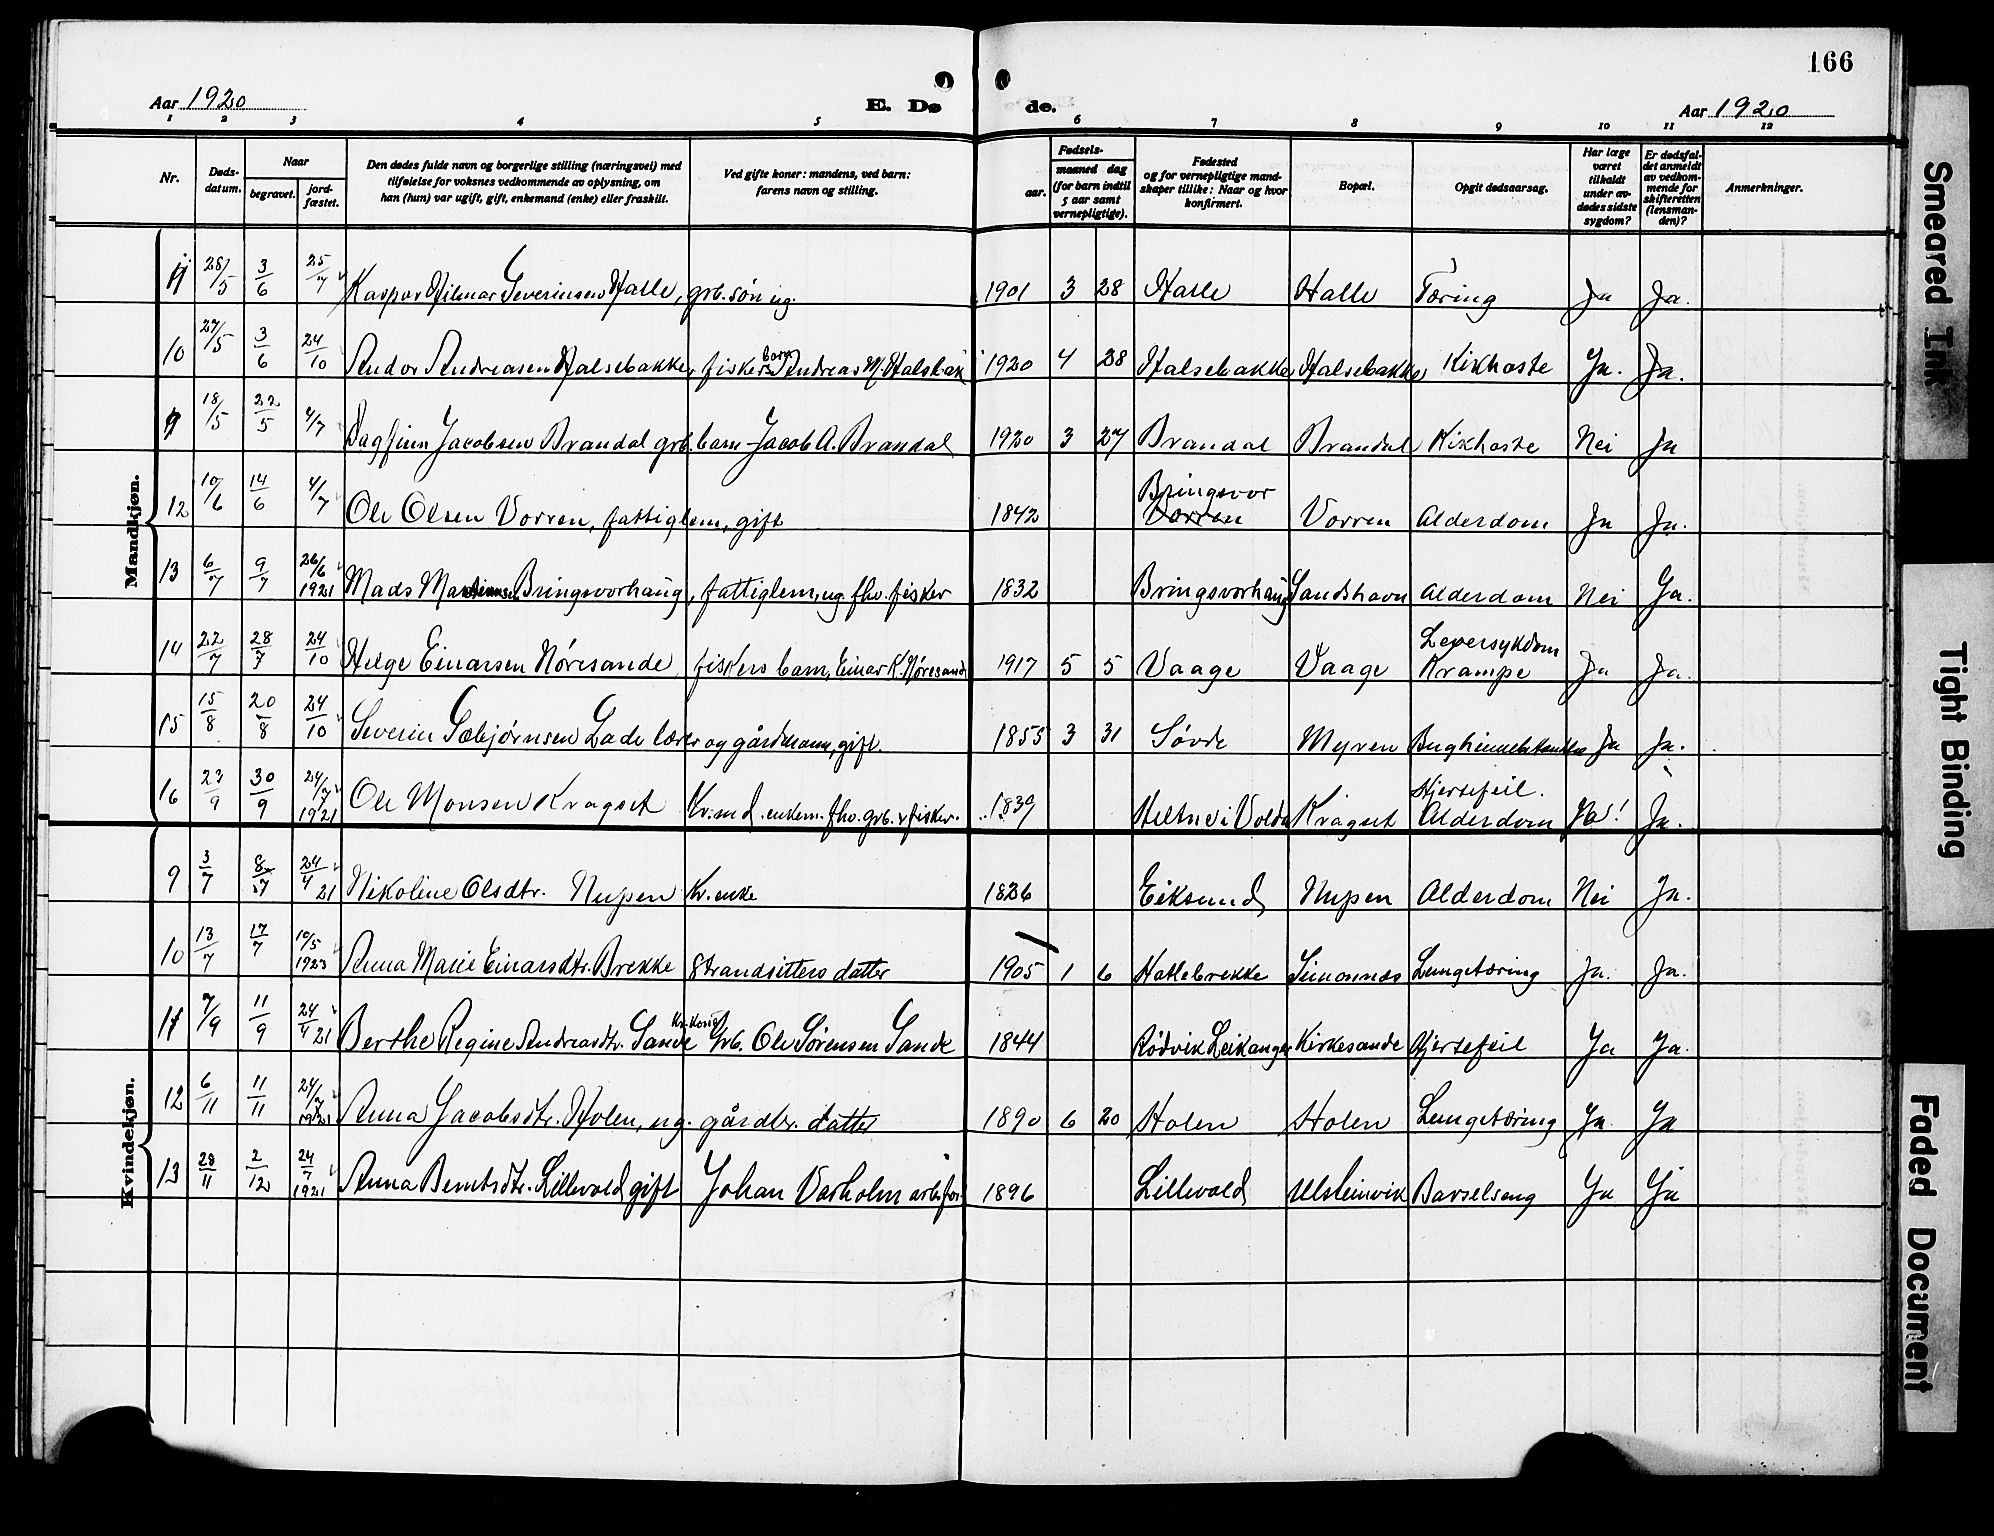 166
Aar 1920 E. Dø de. Aar 1920
1 2 3 4 5 6 7 8 9 10 11 12
Nr. Døds-datum. Naar begravet. jord-fæstet. Den dødes fulde navn og borgerlige stilling (næringsvei) med tilføielse for voksnes vedkommende av oplysning, om han (hun) var ugift, gift, enkemand (enke) eller fraskilt. Ved gifte koner: mandens, ved barn: farens navn og stilling. Fødsels- aar. maaned dag (for barn indtil 5 aar samt vernepligtige). Fødested og for vernepligtige mand-skaper tillike: Naar og hvor konfirmert. Bopæl. Opgit dødsaarsag. Har læge været tilkaldt under av-dødes sidste sygdom? Er dødsfal-det anmeldt av vedkom-mende for skifteretten (lensman-den)? Anmerkninger.
Mandkjøn.
28/5 3/6 25/7 Kaspar Hilmar Severinsen Halle, grb. søn ug. 1901 3 28 Halle Halle Tæring Ja Ja.
10 27/5 3/6 24/10 Andor Andreasen Halsebakke, fiskers barn Andreas M. Halsbak 1920 4 28 Halsebakke Halsebakke Kikhoste Ja. Ja.
18/5 22/5 4/7 Dagfinn Jacobsen Brandal grb. barn - Jacob A. Brandal 1920 3 27 Brandal Brandal Kikhoste Nei Ja
12 10/6 14/6 4/7 Ole Olsen Vorren, fattiglem, gift 1842 Bringsvor Vorren Vorren Alderdom Ja Ja.
13 6/7 9/7 26/6 1921 Mads Martinusen Bringsvorhaug, fattiglem, ug. fhv. fisker 1832 Bringsvorhaug Sandshavn Alderdom Nei Ja.
14 22/7 28/7 24/10 Helge Einarsen Nøresande, fiskers barn, Einar K. Nøresand 1917 5 5 Vaage Vaage Leversykdom Krampe Ja Ja.
15 15/8 20/8 24/10 Severin Sæbjørnsen Lade lærer og gårdmann, gift. 1855 3 31 Søvde Myren Ja Ja.
16 23/9 30/9 24/7 1921 Ole Monsen Kragset Kr. md. enkem. fhv. grb. & fisker. 1839 Heltne i Volda Kragset Hjertefeil. Alderdom Ja! Ja.
Kvindekjøn.
9 3/7 8/7 24/4 21 Nikoline Olsdtr. Nupen Kr. enke 1826 Eiksund Nupen Alderdom Nei Ja.
10 13/7 17/7 10/5 1923 Anna Marie Einarsdtr. Brekke Strandsitters datter 1905 1 6 Hatlebrekke Simonnes Lungetæring Ja. Ja.
11 7/9 11/9 24/4 21 Berthe Regine Andreasdtr. Sande Kr. kone Grb. Ole Sørensen Sande 1844 Rødvik Leikanger Kirkesande Hjertefeil Ja Ja.
12 6/11 11/11 24/7 1921 Anna Jacobsdtr. Holen, ug. gårdbr. datter 1890 6 20 Holen Holen Lungetæring Ja Ja
13 28/11 2/12 24/7 1921 Anna Berntsdtr. Lillevold gift Johan Varholm arb. for. 1896 Lillevold Ulsteinvik Barselseng Ja Ja
Smeared Ink
Tight Binding
Faded Document